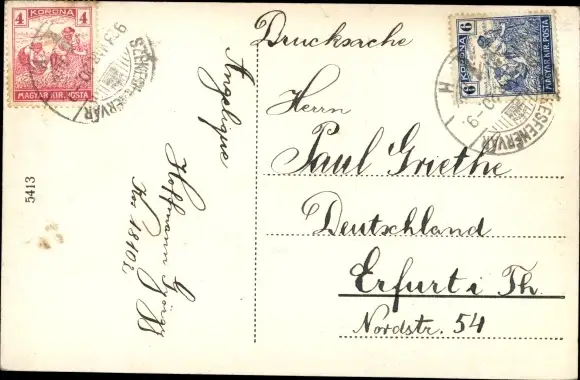 4 KORONA 4
MAGYAR KIR. POSTA
SZÉKESFEHÉRVÁR
Drucksache
6 KORONA 6
MAGYAR KIR. POSTA
Herrn
Paul Griethe
Deutschland
Erfurt i Th.
Nordstr. 54
Angelique
Hoffmann
5413